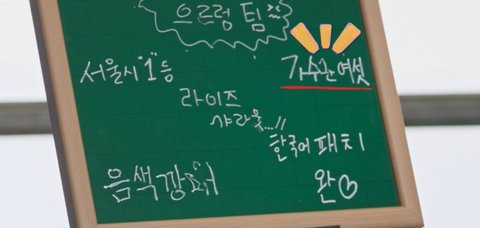 으르렁 팀
서울시 "1"등
가수는 여섯
라이즈
샤라웃...!!
한국어 패치
완♡
음색깡패